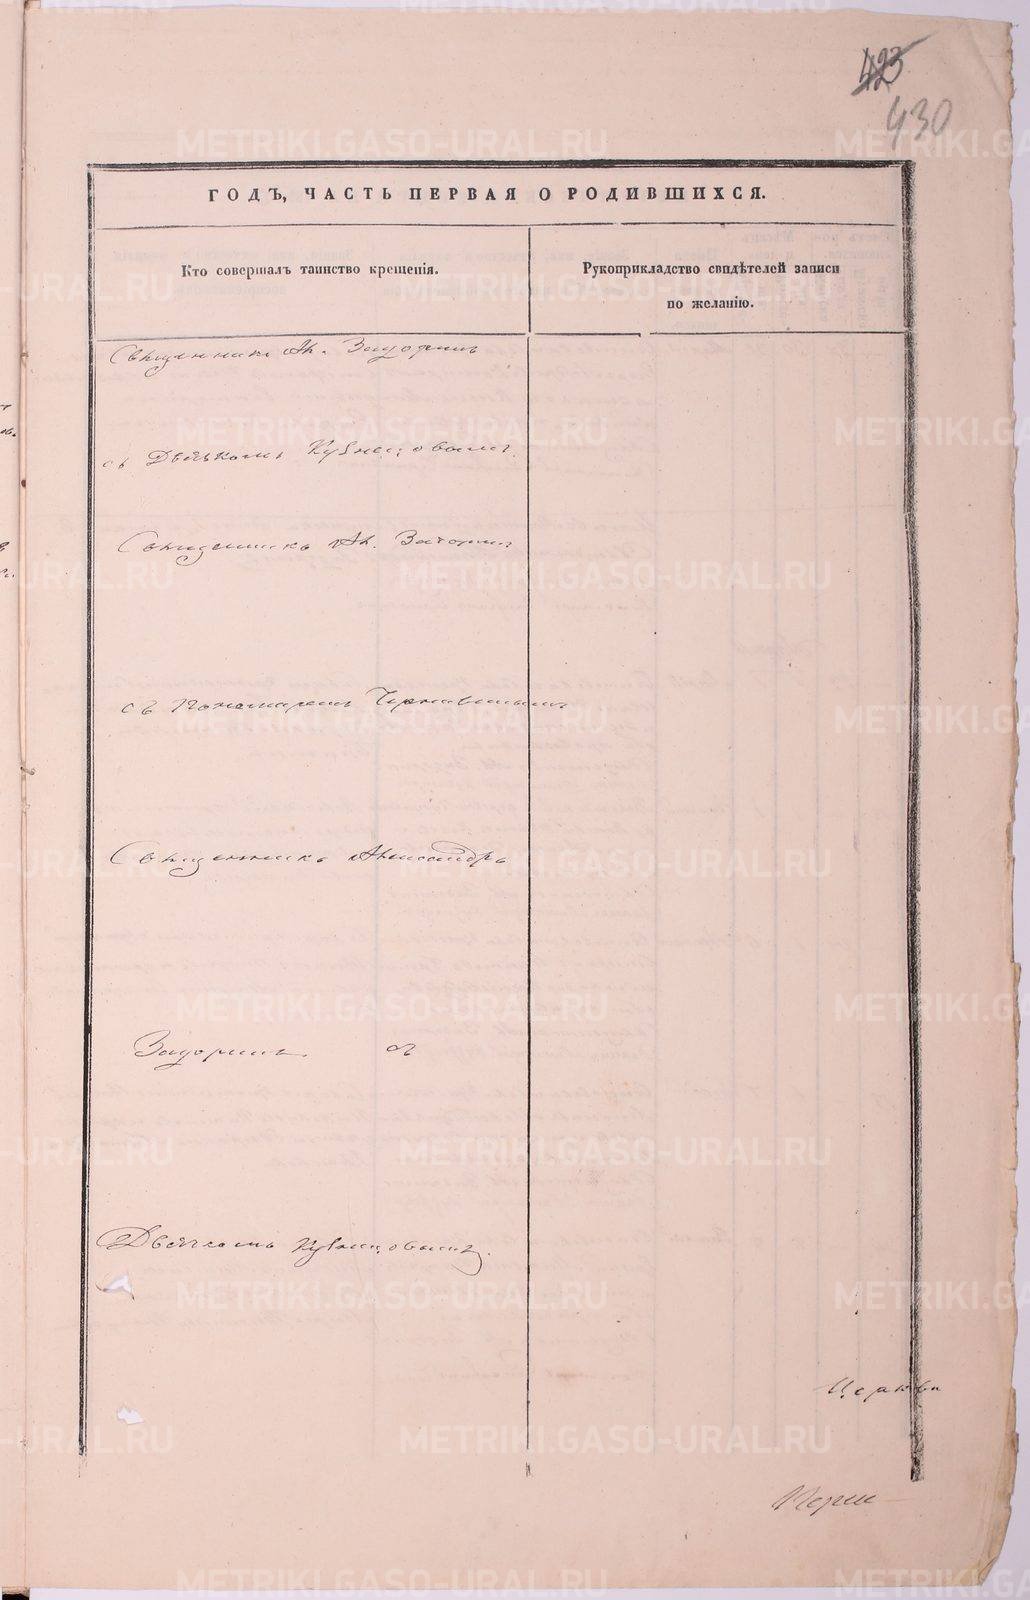 423
430
ГОДЪ, ЧАСТЬ ПЕРВАЯ О РОДИВШИХСЯ.
Кто совершалъ таинство крещенія.
Рукоприкладство свидѣтелей записи
по желанію.
Священникъ Ал. Задоринъ
съ Дьячкомъ Кузнецовымъ.
Священникъ Ал. Задоринъ
съ Пономаремъ Чернавинымъ
Священникъ Александръ
Задоринъ. съ
Дьячкомъ Кузнецовымъ.
Церкви
METRIKI.GASO-URAL.RU